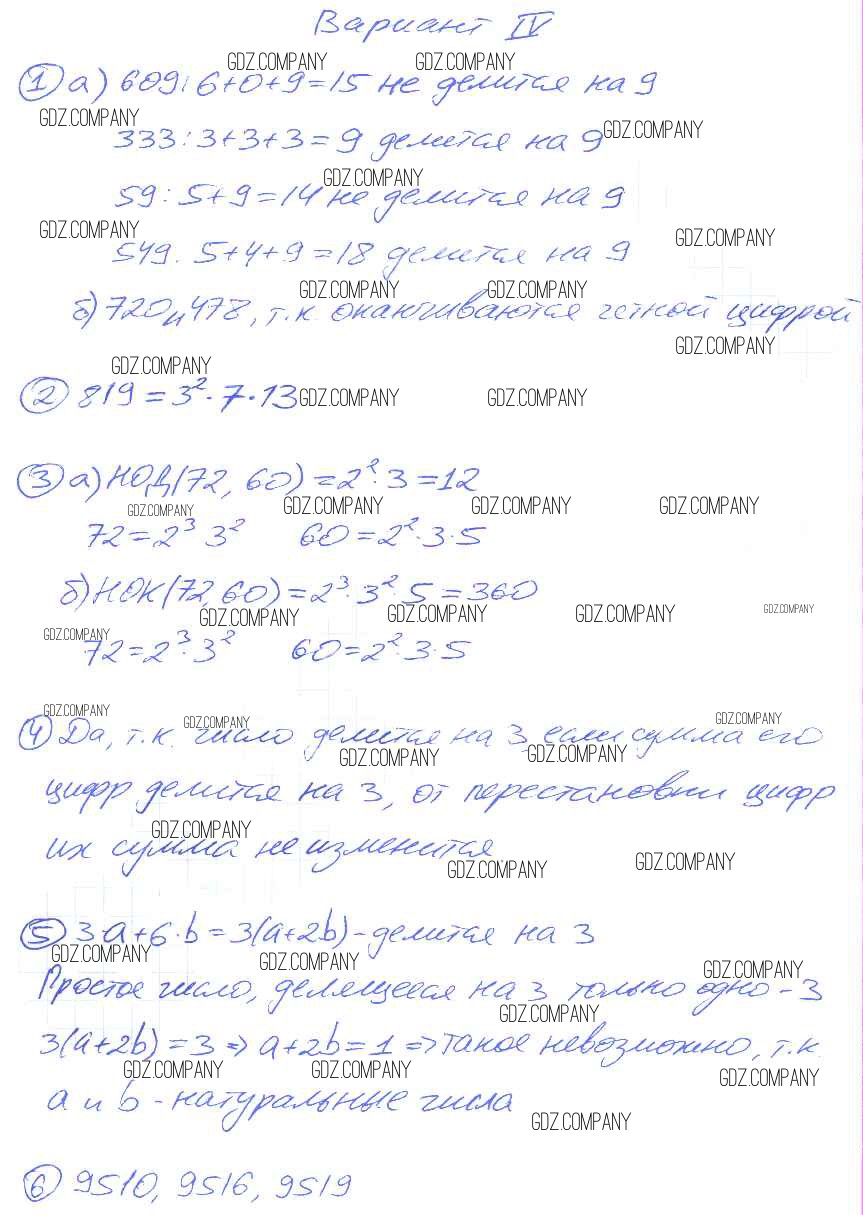 Вариант IV
GDZ.COMPANY GDZ.COMPANY
① а) 609: 6+0+9=15 не делится на 9
GDZ.COMPANY
333: 3+3+3=9 делится на 9 GDZ.COMPANY
GDZ.COMPANY
59: 5+9=14 не делится на 9
GDZ.COMPANY GDZ.COMPANY
549. 5+4+9=18 делится на 9
GDZ.COMPANY GDZ.COMPANY
б) 720 и 478, т.к. оканчиваются четной цифрой
GDZ.COMPANY
GDZ.COMPANY
② 819=3²·7·13 GDZ.COMPANY GDZ.COMPANY
③ а) НОД(72, 60)=2²·3=12
GDZ.COMPANY GDZ.COMPANY GDZ.COMPANY GDZ.COMPANY
72=2³ 3² 60=2²·3·5
б) НОК(72,60)=2³·3²·5=360
GDZ.COMPANY GDZ.COMPANY GDZ.COMPANY GDZ.COMPANY
GDZ.COMPANY
72=2³·3² 60=2²·3·5
GDZ.COMPANY GDZ.COMPANY GDZ.COMPANY
④ Да, т.к. число делится на 3 если сумма его
GDZ.COMPANY GDZ.COMPANY
цифр делится на 3, от перестановки цифр
GDZ.COMPANY
их сумма не изменится
GDZ.COMPANY GDZ.COMPANY
⑤ 3·a+6·b=3(a+2b)-делится на 3
GDZ.COMPANY GDZ.COMPANY GDZ.COMPANY
Простое число, делящееся на 3 только одно-3
GDZ.COMPANY
3(a+2b)=3 => a+2b=1 => такое невозможно, т.к.
GDZ.COMPANY GDZ.COMPANY GDZ.COMPANY
a и b - натуральные числа
GDZ.COMPANY
⑥ 9510, 9516, 9519